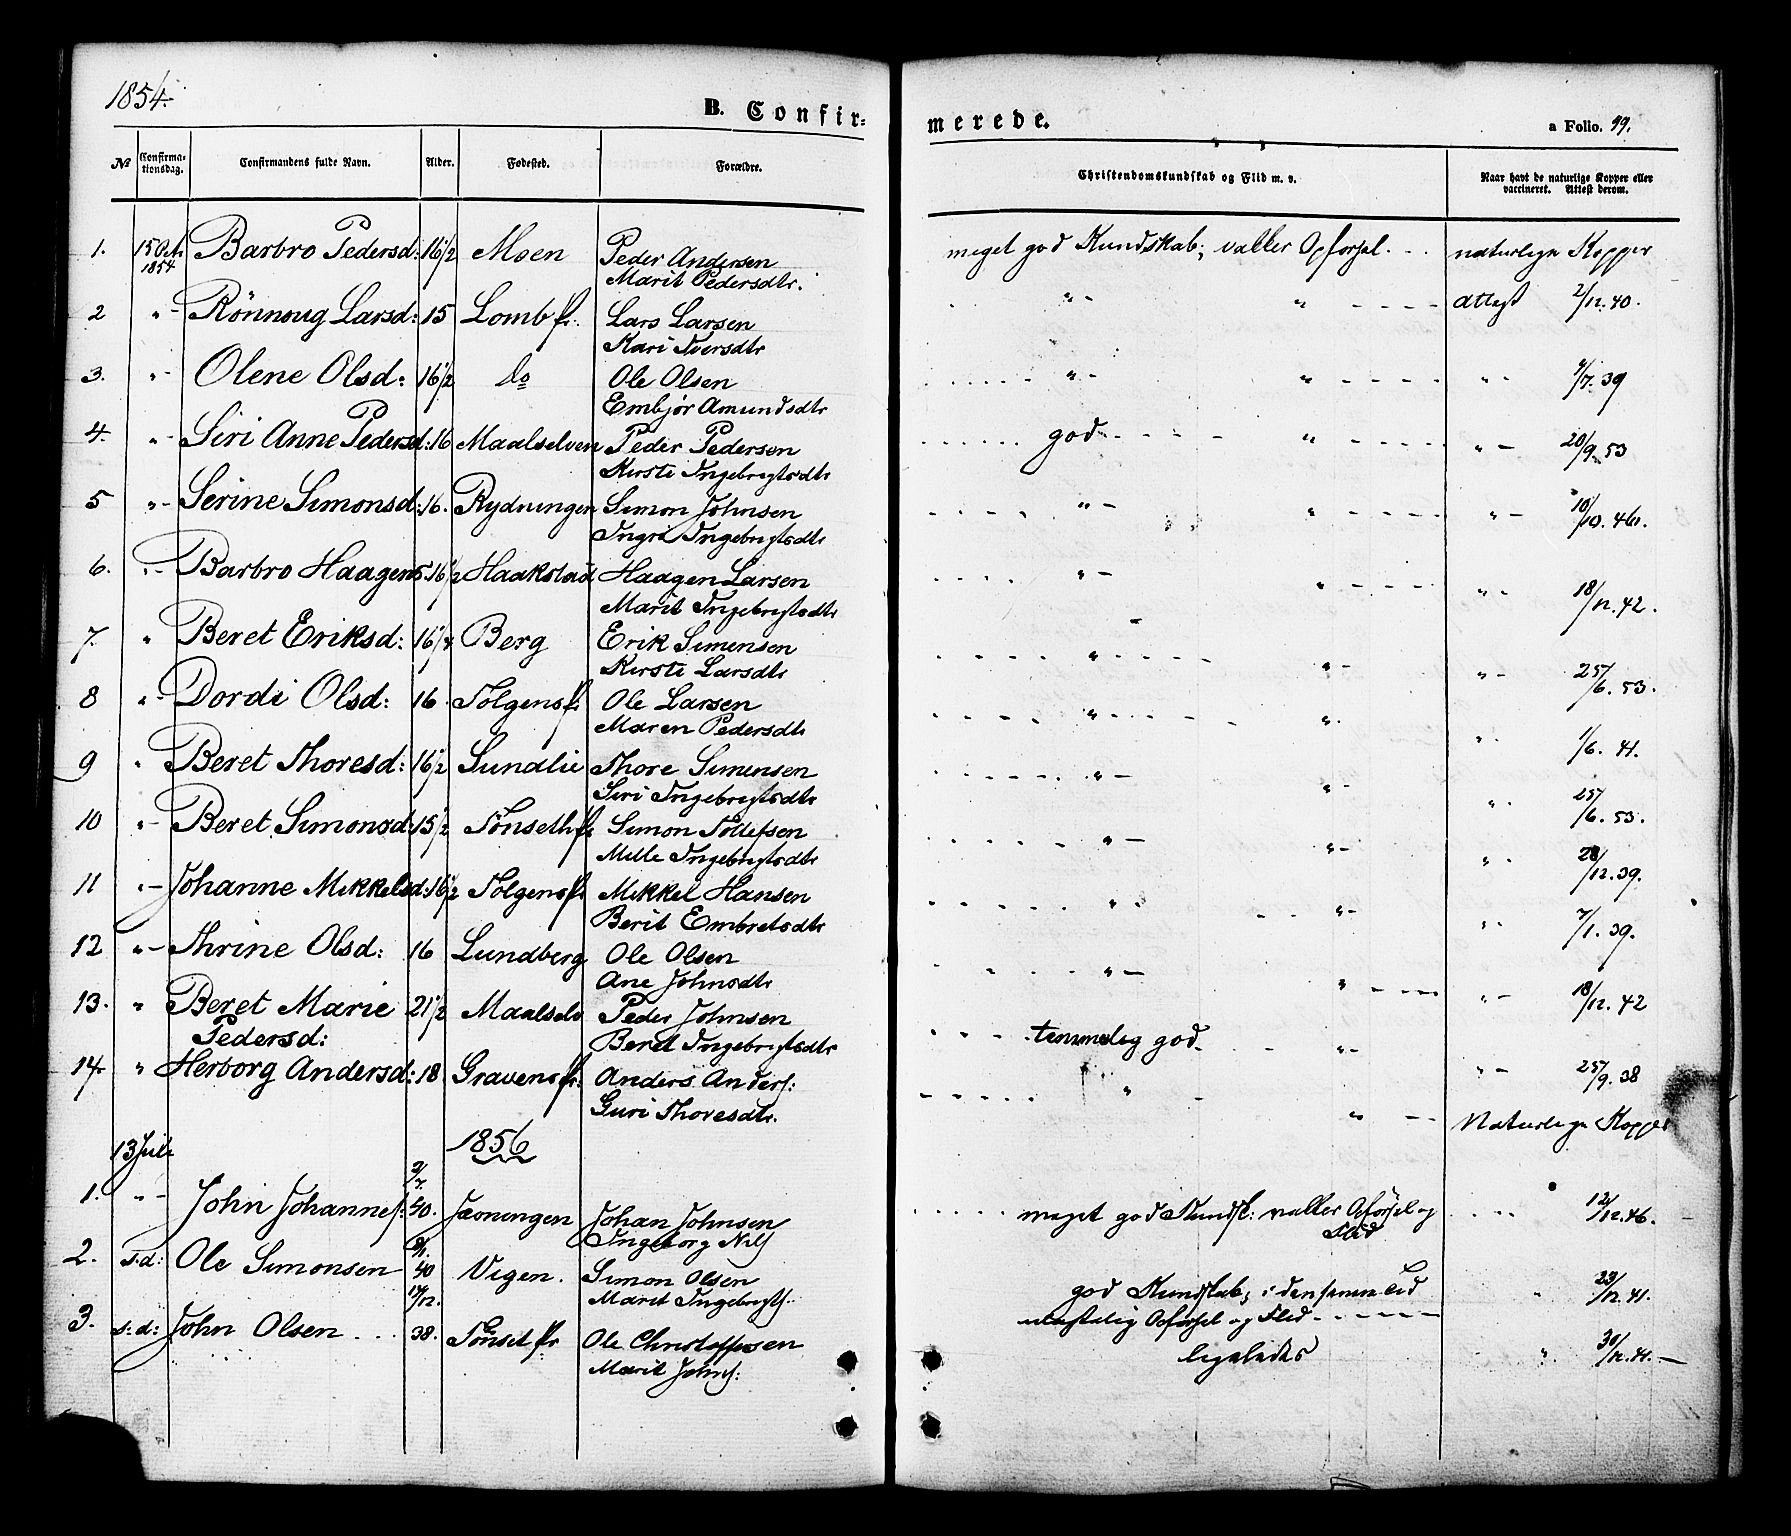 1854.
B. Confir-
merede.
a Folio. 99.
№ Confirma-tionsdag. Confirmandens fulde Navn. Alder. Fødested. Forældre. Christendomskundskab og Flid m. v. Naar havt de naturlige Kopper eller vaccineret. Attest derom.
1. 15 Oct. 1854 Barbro Pedersd: 16 1/2 Moen Peder Andersen meget god Kundskab; vakker Opførsel. naturlige Kopper
Marit Pedersdtr.
2 " - Rönnoug Larsd: 15 Lomb fr. Lars Larsen " - " - - - - Attest 2/12. 40.
Kari Iversdtr
3. " - Olene Olsd: 16 1/2 do Ole Olsen " - " - - - - " - /7. 39
Embjör Amundsdtr
4. " - Siri Anne Pedersd: 16 Maalselven Peder Pedersen god - - - - " - - - - " - 20/9. 53
Kirste Ingebrigtsdtr
5 " - Serine Simonsd: 16. Rydningen Simon Johnsen " - " - - - - " - 10/10. 40.
Ingri Ingebrigtsdtr
6. " - Barbro Haagens 16 1/2 Haakstad Haagen Larsen " - " - - - - " - 18/12. 42.
Marit Ingebrigtsdtr
7. " Beret Eriksd: 16 1/2 Berg Erik Simensen " - " - " - 25/6. 53.
Kirste Larsdtr
8 " - Dordi Olsd: 16 Tolgens fr. Ole Larsen " - " " - 1/6. 41.
Maren Pedersdtr
9 " Beret Thoresd: 16 1/2 Sundlie Thore Simensen " - " - " - 25/6. 53.
Siri Ingebrigtsdtr
10 " - Beret Simonsd: 15 1/2 Tönseth fr. Simon Tollefsen " - " - " 28/12. 39.
Mille Ingebrigtsdtr
11 " - Johanne Mikkelsd: 16 1/2 Tolgens fr. Mikkel Hansen " " - " - 7/1. 39.
Berit Embretsdtr
12 " - Thrine Olsd: 16 Lundberg Ole Olsen " - " - - - " - 18/12. 42
Ane Johnsdtr
13. " Beret Marie 21 1/2 Maalselv Peder Johnsen temmelig god - - " - " - 25/9. 38
Pedersd: Beret Ingebrigtsdtr
14 " Herborg Andersd: 18 Gravens fr. Anders Anders: " " - - Naturlige Kopper
Guri Thoresdtr.
13 Juli 1856
1. " - John Johannes: 2/7. 40. Jæoningen Johan Johnsen meget god Kundsk: vakker Opførsel og Flid " - 12/12. 46.
Ingeborg Nils
2. s.d: Ole Simonsen 9/1. 40 Vigen. Simon Olsen god Kundskab; i densamme Tid " 23/12. 41.
Marit Ingebrigts. Opførsel og Flid - - - -
3. s:d: John Olsen 17/12. 38. Tönset fr. Ole Christoffersen ligeledes " 30/12. 41. —
Marit Johns: